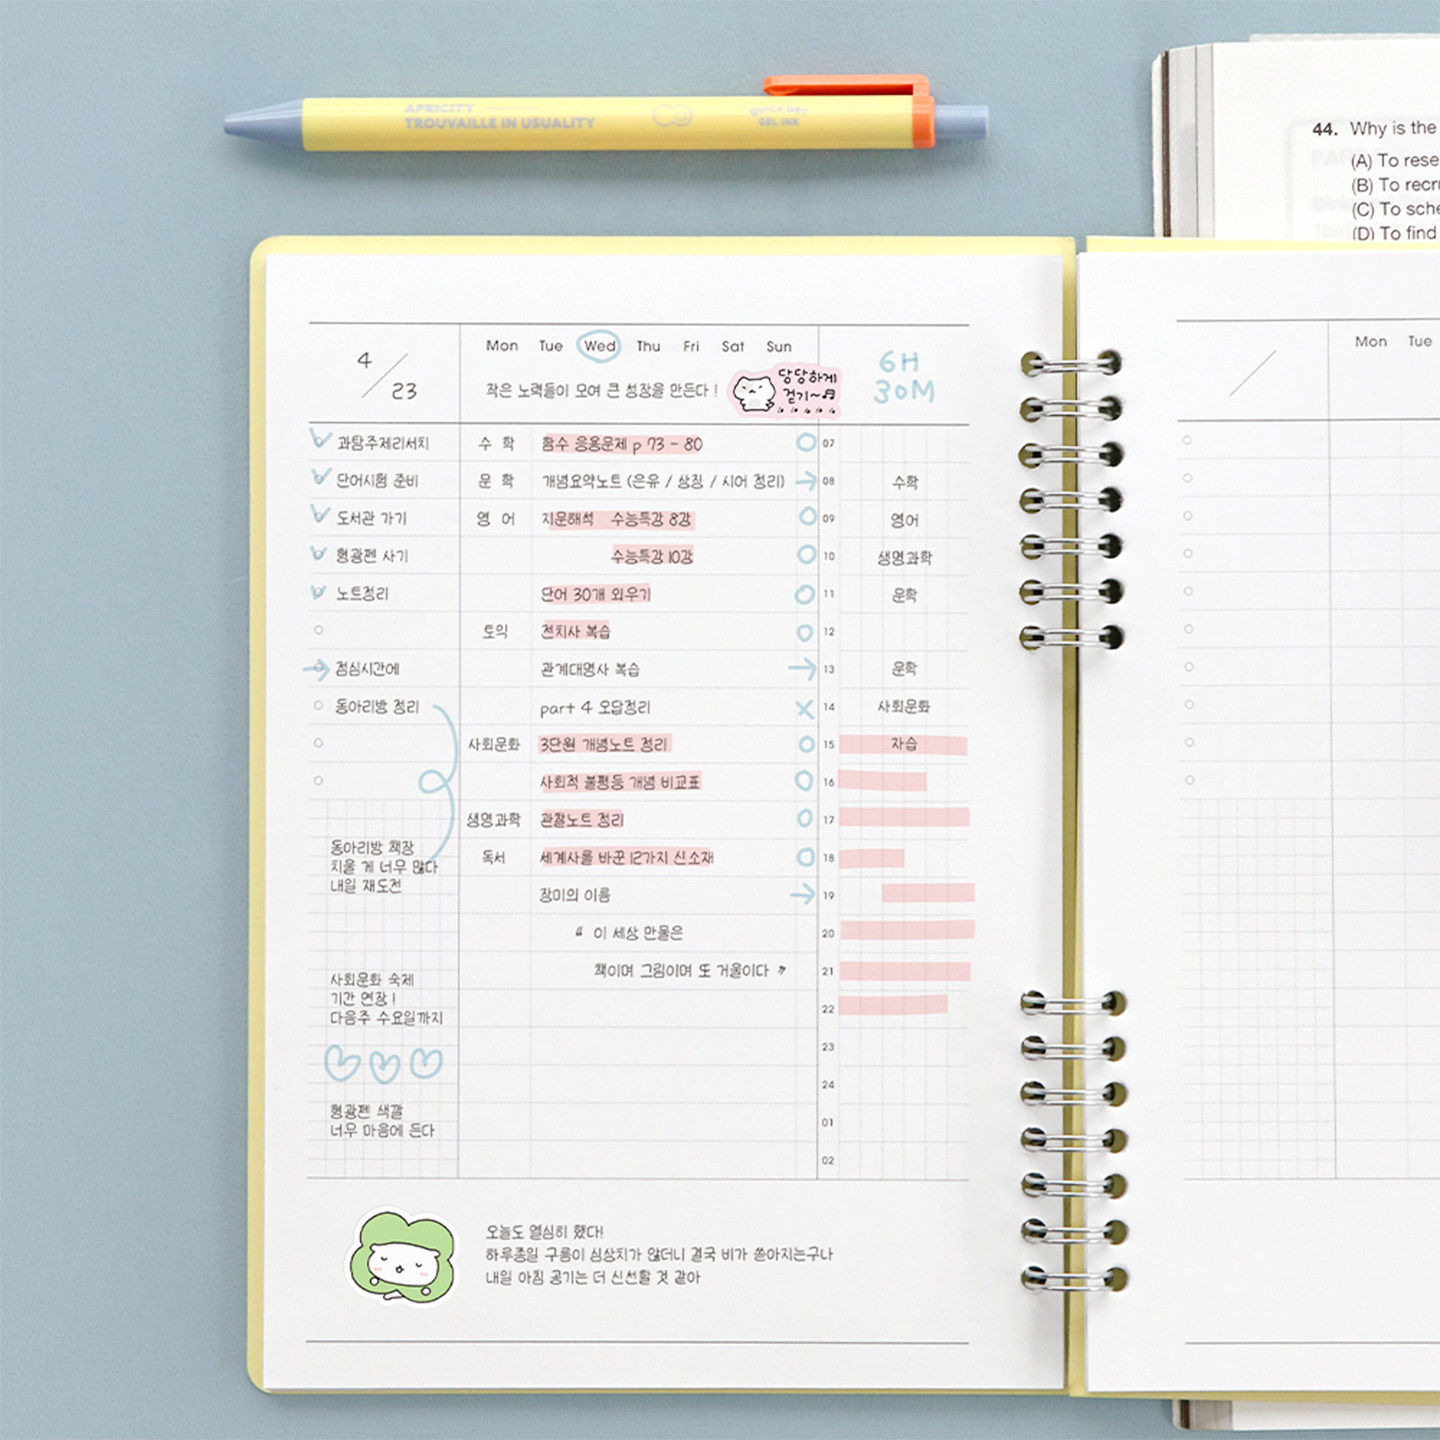 APRICITY
TROUVAILLE IN USUALITY
QUICK DRY
GEL INK
44. Why is the
(A) To rese
(B) To recru
(C) To sche
(D) To find
4/23
Mon Tue Wed Thu Fri Sat Sun
작은 노력들이 모여 큰 성장을 만든다!
당당하게
걷기~♬
6H
30M
과탐주제리서치
단어시험 준비
도서관 가기
형광펜 사기
노트정리
점심시간에
동아리방 정리
동아리방 책장
치울 게 너무 많다
내일 재도전
사회문화 숙제
기간 연장!
다음주 수요일까지
형광펜 색깔
너무 마음에 든다
수학 함수 응용문제 p 73 - 80
문학 개념요약노트 (은유 / 상징 / 시어 정리)
영어 지문해석 수능특강 8강
수능특강 10강
단어 30개 외우기
토익 전치사 복습
관계대명사 복습
part 4 오답정리
사회문화 3단원 개념노트 정리
사회적 불평등 개념 비교표
생명과학 관찰노트 정리
독서 세계사를 바꾼 12가지 신소재
장미의 이름
" 이 세상 만물은
책이며 그림이며 또 거울이다 "
07
08 수학
09 영어
10 생명과학
11 문학
12
13 문학
14 사회문화
15 자습
16
17
18
19
20
21
22
23
24
01
02
오늘도 열심히 했다!
하루종일 구름이 심상치가 않더니 결국 비가 쏟아지는구나
내일 아침 공기는 더 신선할 것 같아
Mon Tue